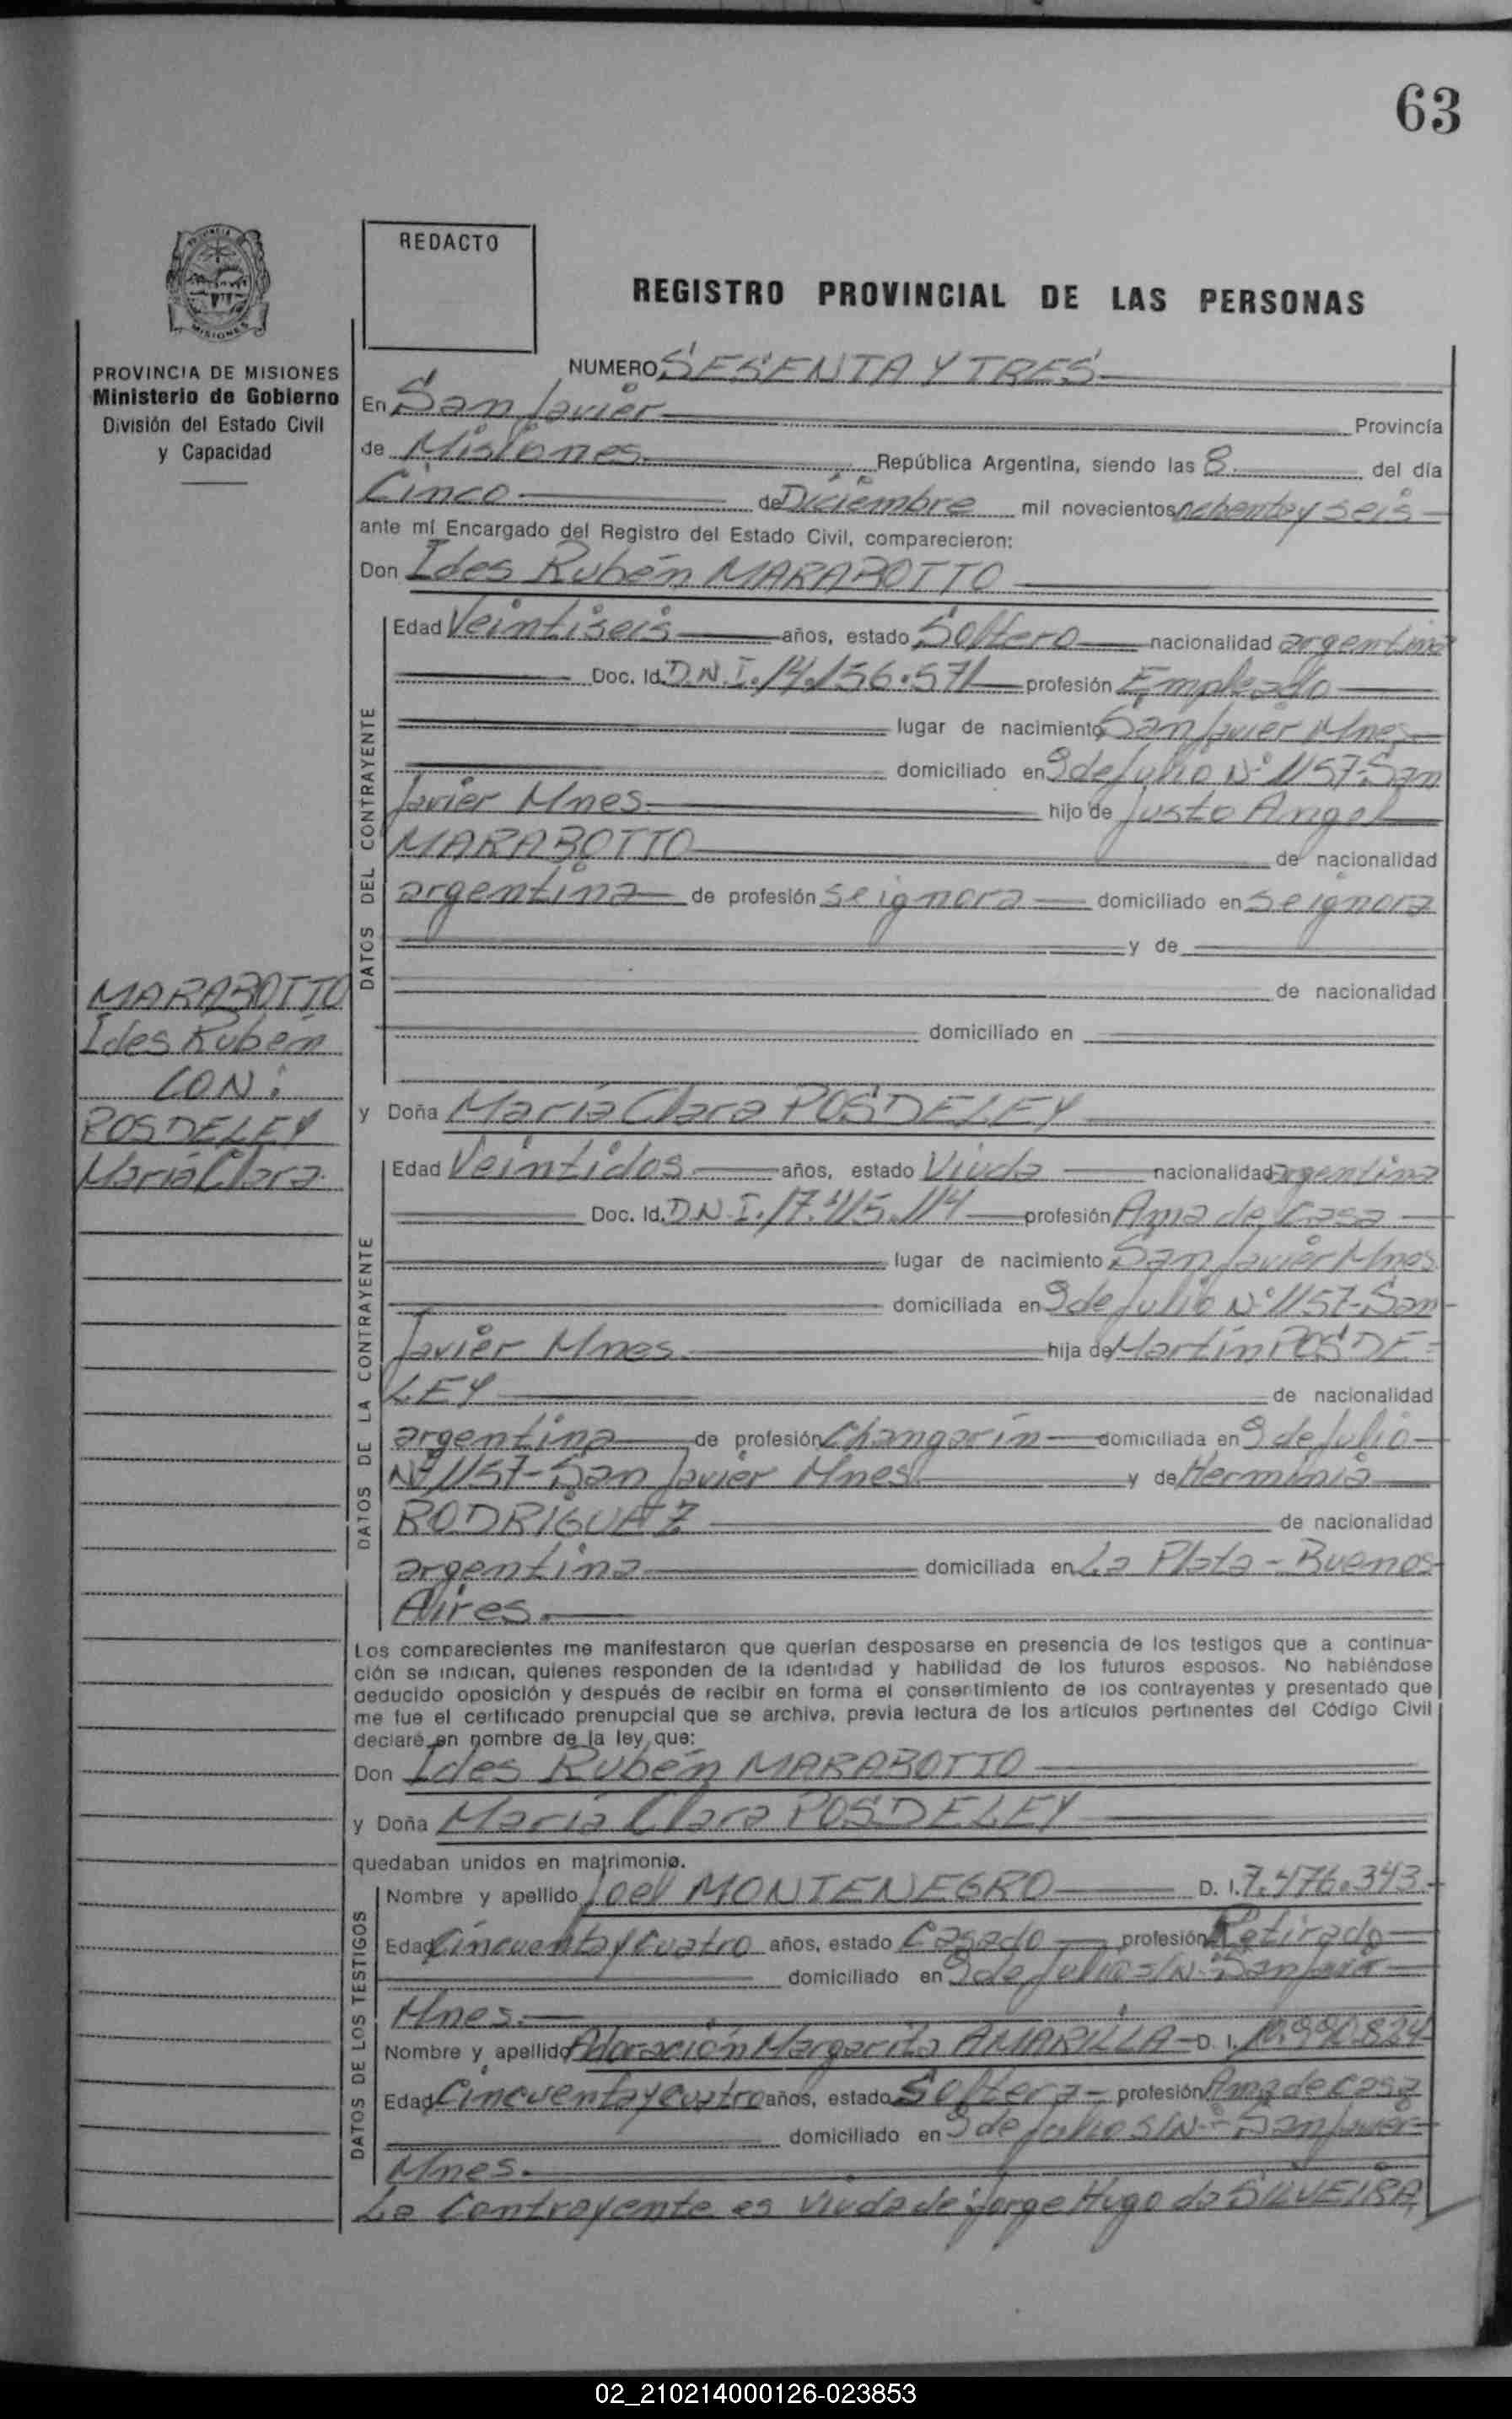 63
REDACTO
REGISTRO PROVINCIAL DE LAS PERSONAS
MISIONES
PROVINCIA DE MISIONES
Ministerio de Gobierno
División del Estado Civil
y Capacidad
NUMERO SESENTA Y TRES
En San Javier Provincia
de Misiones República Argentina, siendo las 8 del día
Cinco de Diciembre mil novecientos ochenta y seis
ante mí Encargado del Registro del Estado Civil, comparecieron:
Don Ides Rubén MARABOTTO
DATOS DEL CONTRAYENTE
Edad Veintiseis años, estado Soltero nacionalidad argentina
Doc. Id. D.N.I. 14.156.571 profesión Empleado
lugar de nacimiento San Javier Mnes
domiciliado en 9 de Julio Nº 1157-San
Javier Mnes. hijo de Justo Angel
MARABOTTO de nacionalidad
argentina de profesión se ignora domiciliado en se ignora
y de
de nacionalidad
domiciliado en
MARABOTTO
Ides Rubén
CON:
POSDELEY
María Clara.
y Doña María Clara POSDELEY
DATOS DE LA CONTRAYENTE
Edad Veintidos años, estado Viuda nacionalidad argentina
Doc. Id. D.N.I. 17.415.114 profesión Ama de Casa
lugar de nacimiento San Javier Mnes
domiciliada en 9 de Julio Nº 1157-San
Javier Mnes. hija de Martín POSDE-
LEY de nacionalidad
argentina de profesión Changarín domiciliada en 9 de Julio
Nº 1157-San Javier Mnes. y de Herminia
RODRIGUEZ de nacionalidad
argentina domiciliada en La Plata - Buenos
Aires.
Los comparecientes me manifestaron que querían desposarse en presencia de los testigos que a continua-
ción se indican, quienes responden de la identidad y habilidad de los futuros esposos. No habiéndose
deducido oposición y después de recibir en forma el consentimiento de los contrayentes y presentado que
me fue el certificado prenupcial que se archiva, previa lectura de los artículos pertinentes del Código Civil
declaré en nombre de la ley que:
Don Ides Rubén MARABOTTO
y Doña María Clara POSDELEY
quedaban unidos en matrimonio.
DATOS DE LOS TESTIGOS
Nombre y apellido Joel MONTENEGRO D. I. 7.476.343
Edad Cincuenta y cuatro años, estado Casado profesión Retirado
domiciliado en 9 de Julio S/N- San Javier
Mnes.
Nombre y apellido Adoración Margarita AMARILLA D. I.
Edad Cincuenta y cuatro años, estado Soltera - profesión Ama de casa
domiciliado en 9 de Julio S/N- San Javier
Mnes.
La Contrayente es Viuda de Jorge Hugo da SILVEIRA
02_210214000126-023853